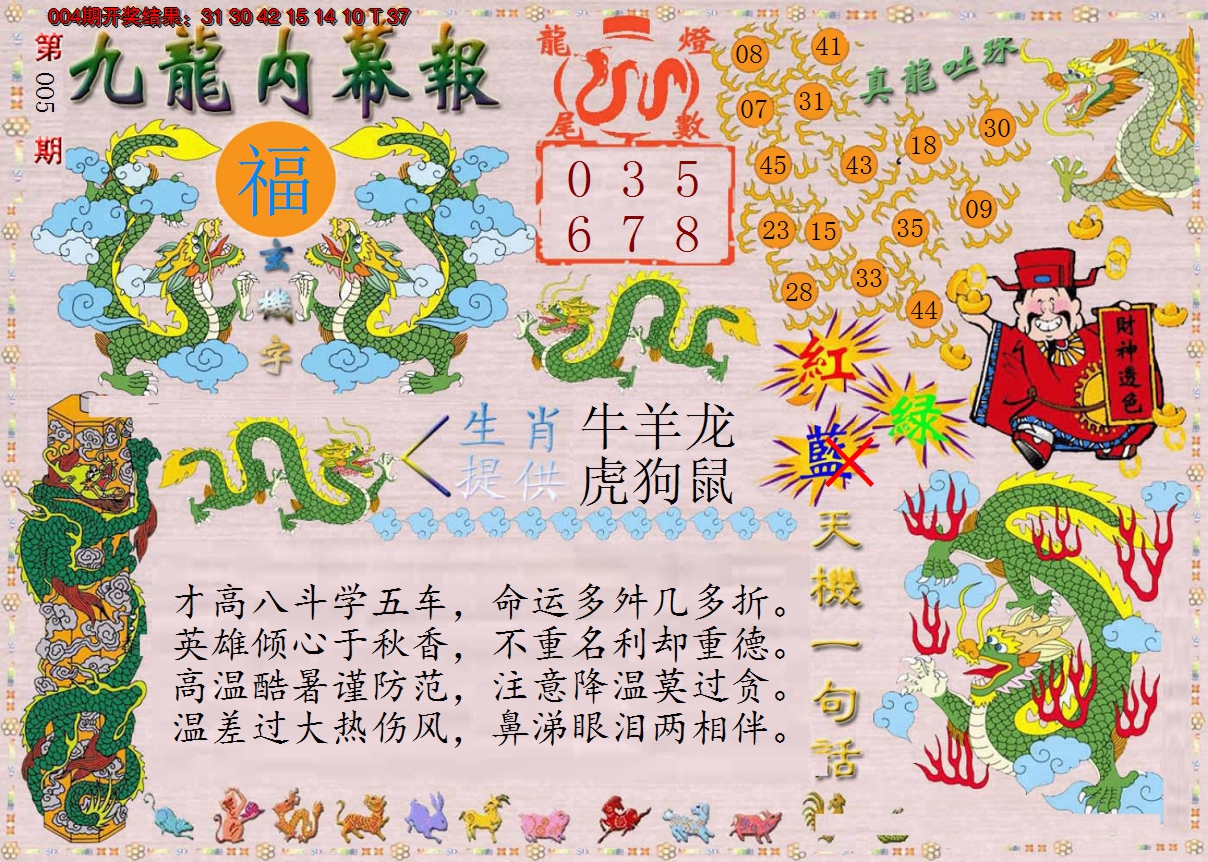 004期开奖结果：31 30 42 15 14 10 T 37
第005期
九龍内幕報
福
玄機字
龍燈
尾數
0 3 5
6 7 8
真龍吐珠
08 41
07 31
45 43 18 30
23 15 35 09
28 33 44
財神透色
紅
綠
藍
生肖提供
牛羊龙
虎狗鼠
天機一句话
才高八斗学五车，命运多舛几多折。
英雄倾心于秋香，不重名利却重德。
高温酷暑谨防范，注意降温莫过贪。
温差过大热伤风，鼻涕眼泪两相伴。